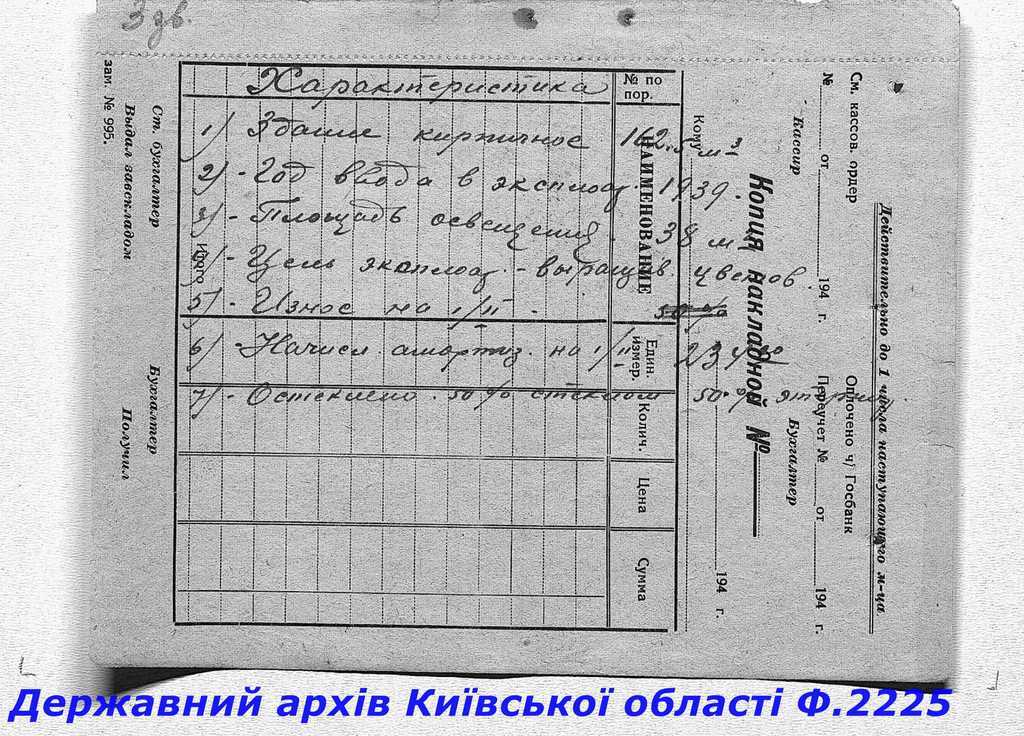 3 зв.
Характеристика
1) Здание кирпичное 162.5 м³
2) - Год ввода в эксплоат. 1939.
3) - Площадь освещения. 38 м²
4) - Цель эксплоат. - выращив. цветов.
5) - Износ на 1/II - 50%
6) - Начисл. амортиз. на 1/II 234
7) - Остеклено. 50% стеклом 50%
№ по пор.
НАИМЕНОВАНИЕ
Един. измер.
Колич.
Цена
Сумма
Итого
Действительно до 1 числа наступающего м-ца
См. кассов. ордер
Оплочено ч/ Госбанк
№ от 194 г.
Переучет № от 194 г.
Кассир
Бухгалтер
Копия накладной №
Кому
194 г.
Ст. бухгалтер
Бухгалтер
Выдал завскладом
Получил
зам. № 995.
Державний архів Київської області Ф.2225